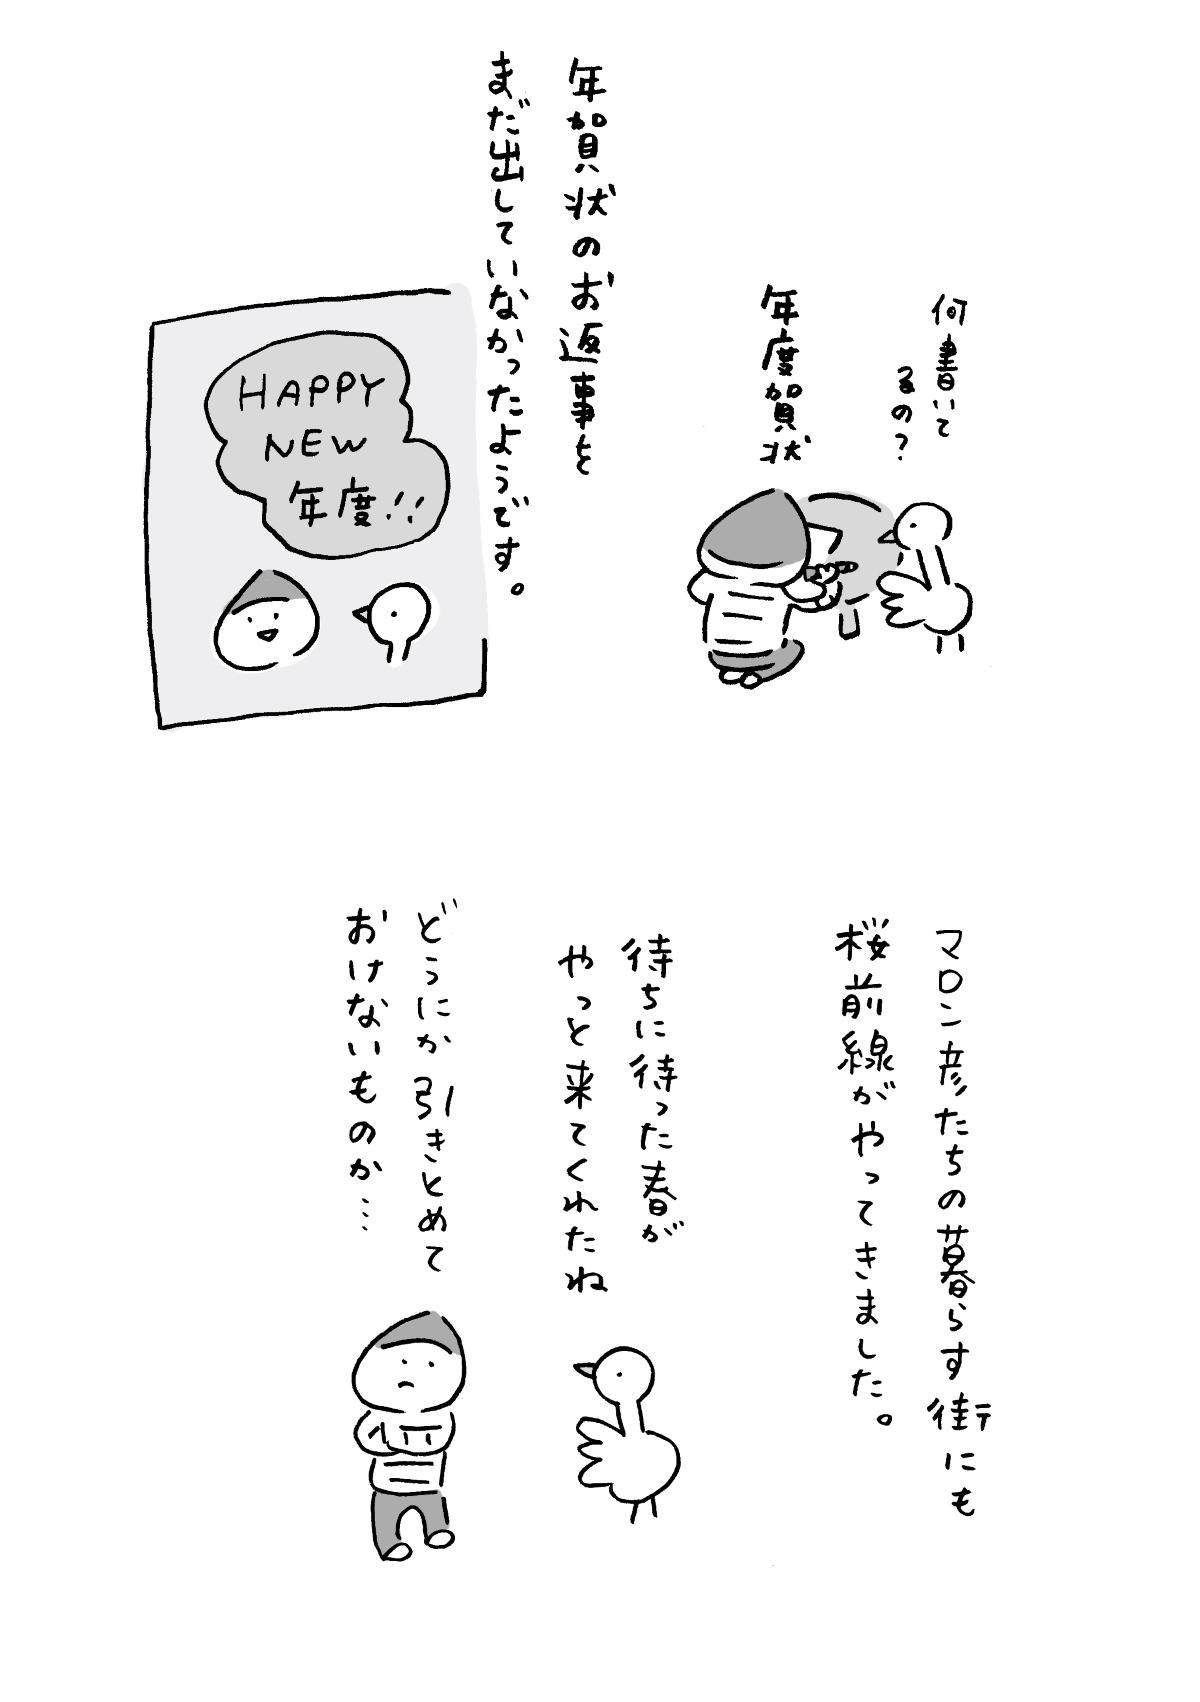 何書いて
るの?
年度賀状
年賀状のお返事を
まだ出していなかったようです。
HAPPY
NEW
年度!!
マロン彦たちの暮らす街にも
桜前線がやってきました。
待ちに待った春が
やっと来てくれたね
どうにか引きとめて
おけないものか…